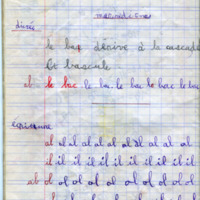 mercredi 6 mai
dictée
le bac dérive à la cascade
et bascule.
al le bac le bac le bac le bac le bac
écriture
al al al al al al al al al al
il il il il il il il il il il
ol ol ol ol ol ol ol ol ol